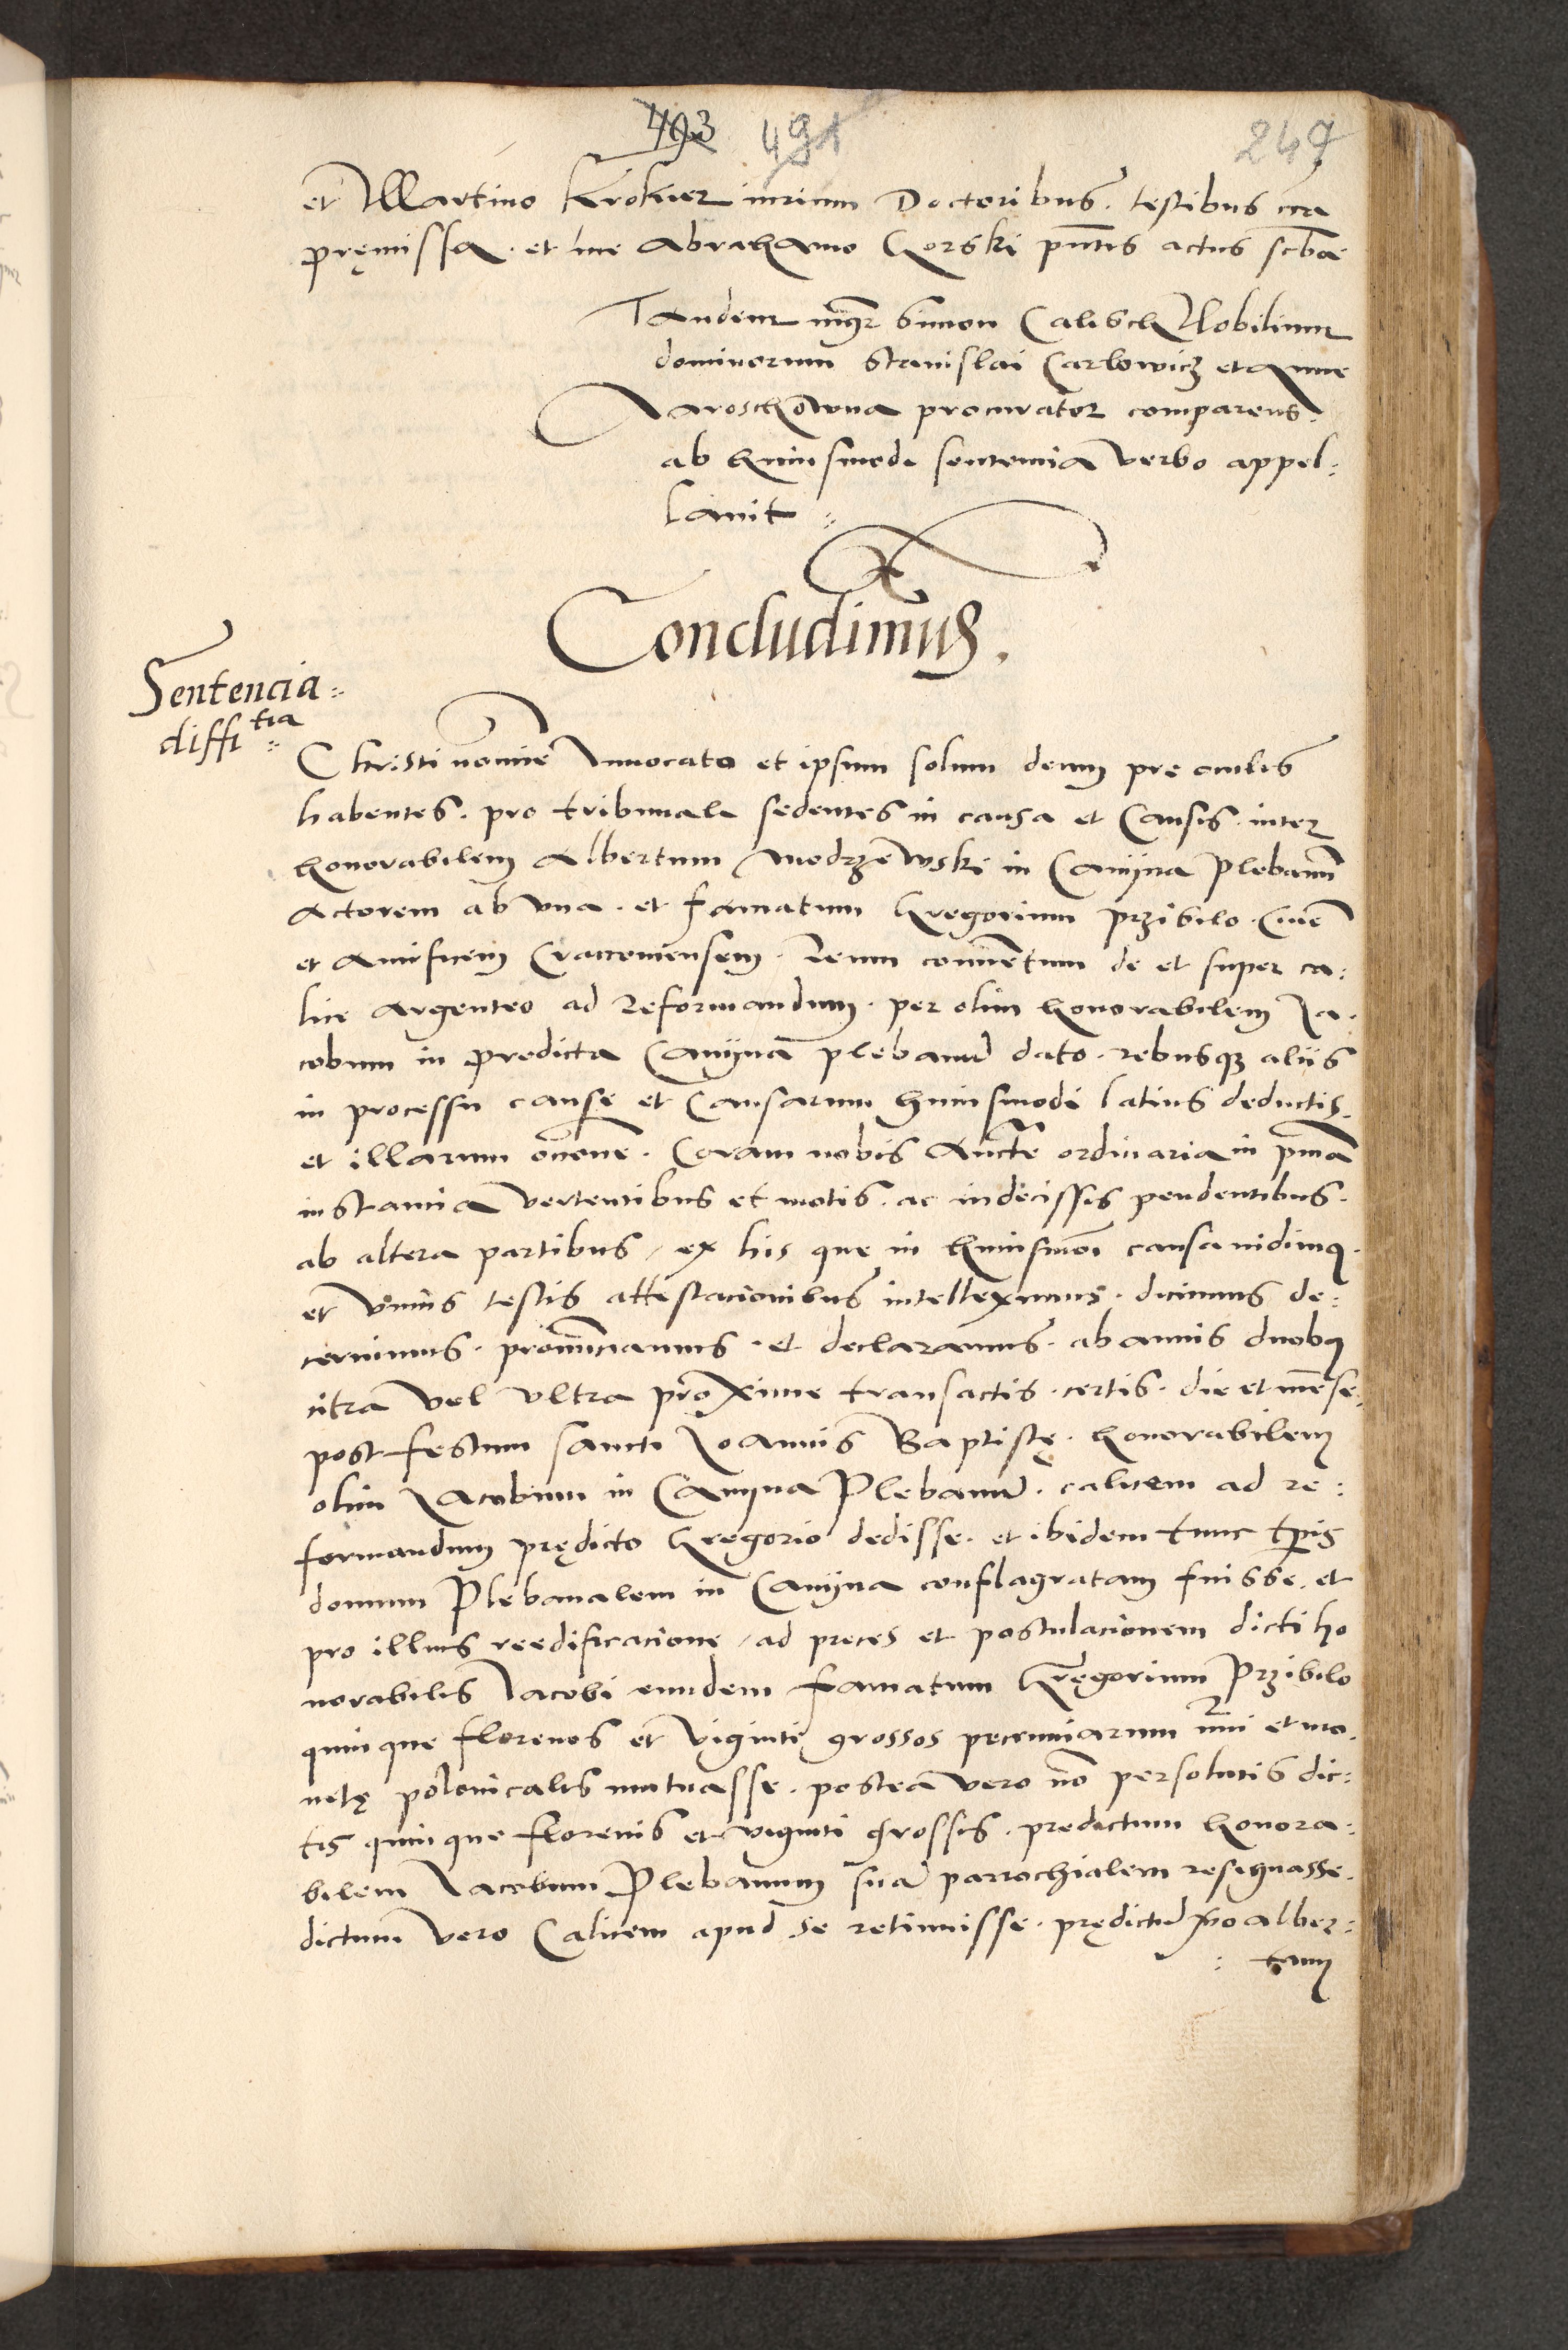 493 491 249
et Martino Krokier iurium Doctoribus. testibus cca
pręmissa. et me Abrahamo Gorski pñtis actus scba
Tandem mgr Simon Calisch Nobilium
dominorum Stanislai Carlowicz et Anne
Jaroschowna procurator comparens.
ab huiusmodi sentencia verbo appel:
lauit
Concludimus.
Sentencia
diffitia
Christi nomine Inuocato et ipsum solum deum prę oculis
habentes. pro tribunali sedentes in causa et Causis. inter
honorabilem Albertum Modrzewski in Camyna Plebanũ
Actorem ab vna. et famatum Gregorium Przibilo. Ciuẽ
et Aurificem Cracouiensem. Reum conuentum de et super ca:
lice argenteo ad Reformandum. per olim honorabilem Ja.
cobum in predicta Camyna plebanũ dato. rebusq aliis
in processu causę et Causarum huiusmodi latius deductis.
et illarum occõne. Coram nobis Aucte ordinaria in pma
instancia vertentibus et motis. ac indecissis pendentibus.
ab altera partibus, ex his quę in huiusmõi causa uidimus.
et vnius testis attestacionibus intelleximus. dicimus de:
cernimus. pronũcciamus. et declaramus. ab annis duobus
citra vel vltra proxime transactis. certis. die et mẽse.
post festum sancti Joannis Baptistę. honorabilem
olim Jacobum in Camyna Plebanũ. calicem ad re:
formandum prędicto Gregorio dedisse. et ibidem tunc tpis
domum Plebanalem in Camyna conflagratam fuisse. et
pro illius reedificacione, ad preces et postulacionem dicti ho
norabilis Jacobi eundem famatum Gręgorium Przibilo
quinque florenos et viginti grossos pecuniarum nũi et mo.
netę polonicalis mutuasse. postea vero nõ persolutis dic:
tis quinque florenis et viginti Grossis. predictum honora:
bilem Jacobum Plebanum suã parrochialem resignasse.
dictum vero Calicem apud se retinuisse. prędictũ vo Alber:
tum